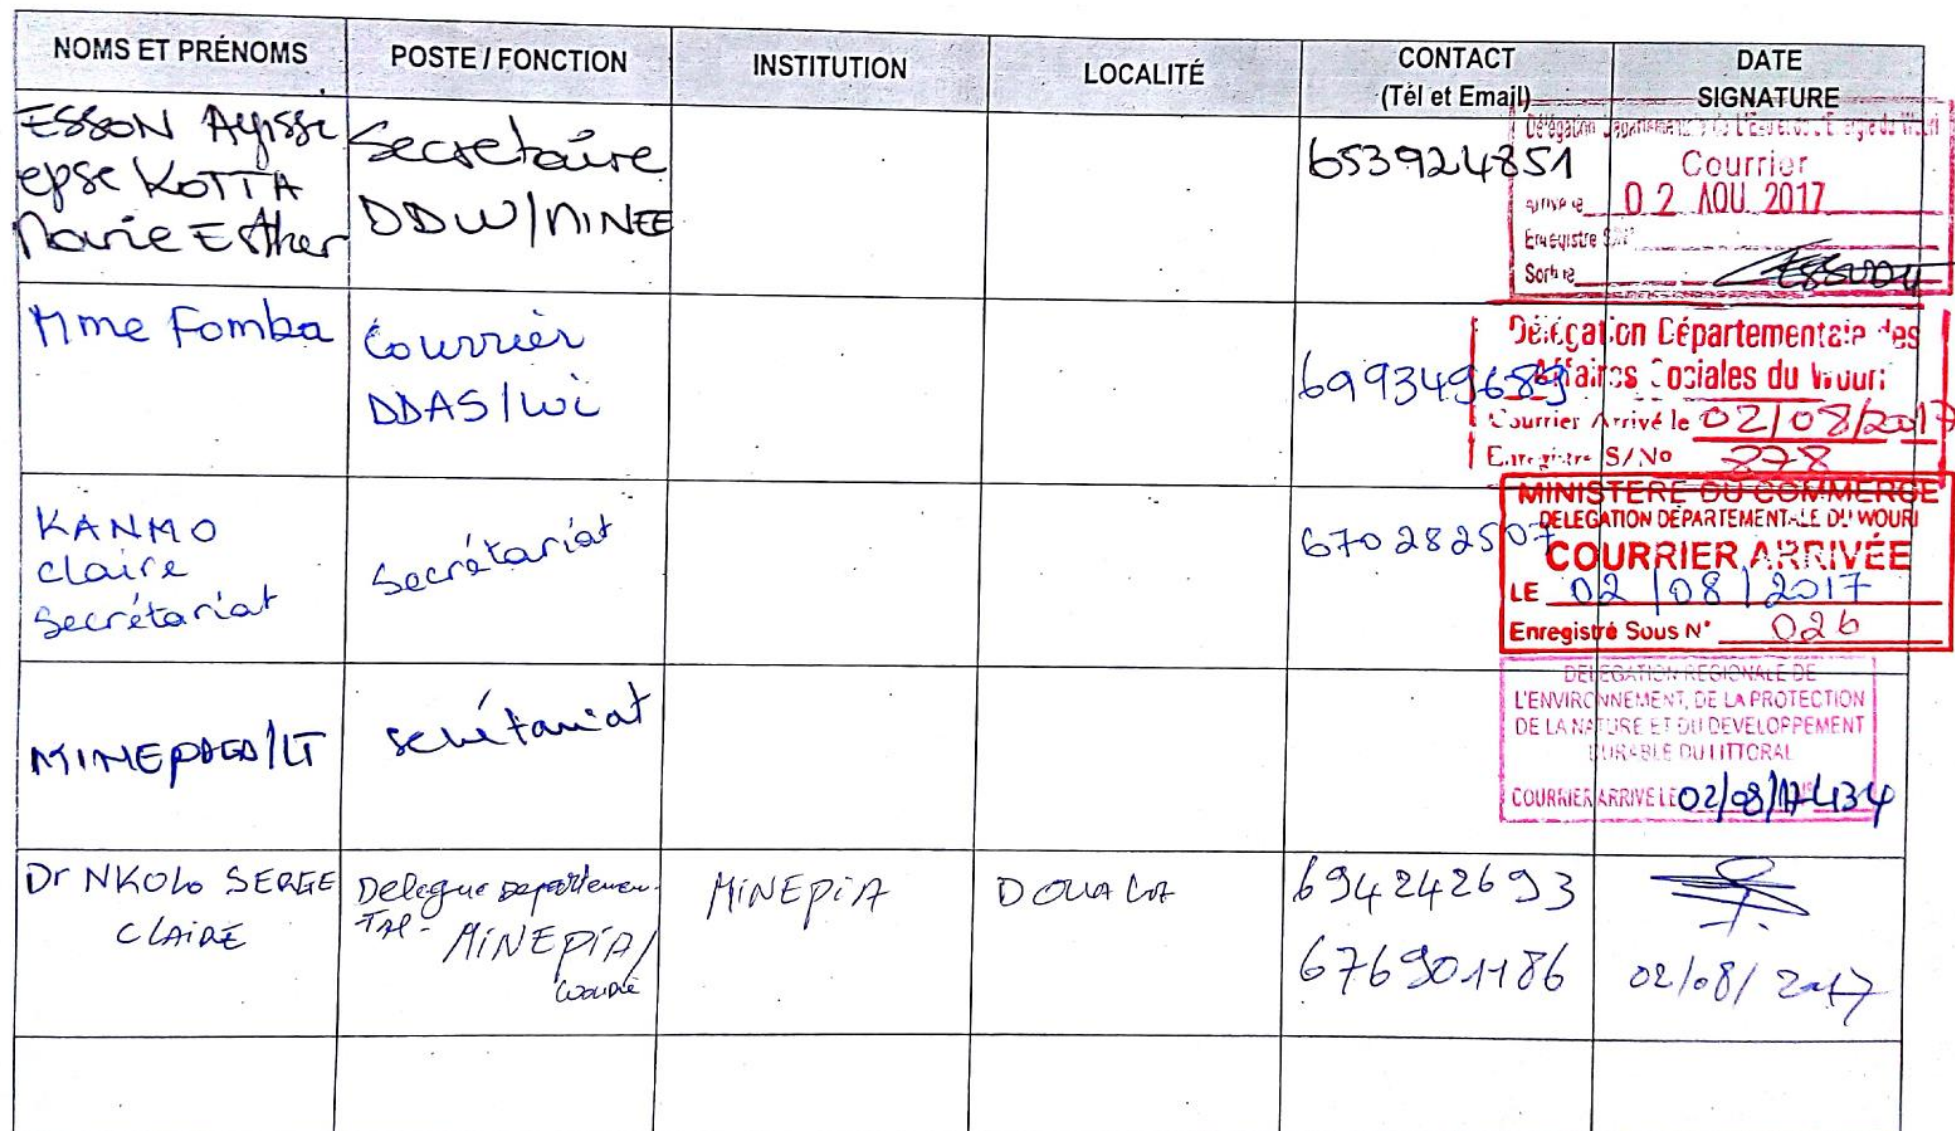 NOMS ET PRÉNOMS
POSTE / FONCTION
INSTITUTION
LOCALITÉ
CONTACT
(Tél et Email)
DATE
SIGNATURE
ESSON Ayissi
epse KOTTA
Marie Esther
Secretaire
DDW/MINEE
653924851
Courrier
02 AOU 2017
Enregistre S/N°
Sortie
Mme Fomba
Courrier
DDAS/Wi
699349689
Délégation Départementale des
Affaires Sociales du Wouri
Courrier Arrivé le 02/08/2017
Enregistre S/No 278
KANMO
Claire
Secrétariat
Secrétariat
670282507
MINISTERE DU COMMERCE
DELEGATION DÉPARTEMENTALE DU WOURI
COURRIER ARRIVÉE
LE 02/08/2017
Enregistré Sous N° 026
/LT
secrétariat
DELEGATION REGIONALE DE
L'ENVIRONNEMENT, DE LA PROTECTION
DE LA NATURE ET DU DEVELOPPEMENT
DURABLE DU LITTORAL
COURRIER ARRIVE LE 02/08/17 434
Dr NKOLO SERGE
CLAIRE
Delegue Departemen-
Tal- MINEPIA/
MINEPIA
DOUALA
694242693
676901186
02/08/2017